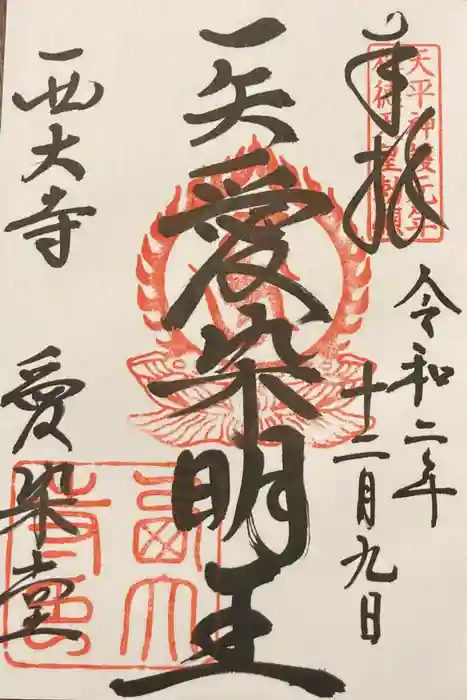 奉拝
天平神護元年
称徳天皇勅願
令和二年
十二月九日
一矢愛染明王
西大寺
愛染堂